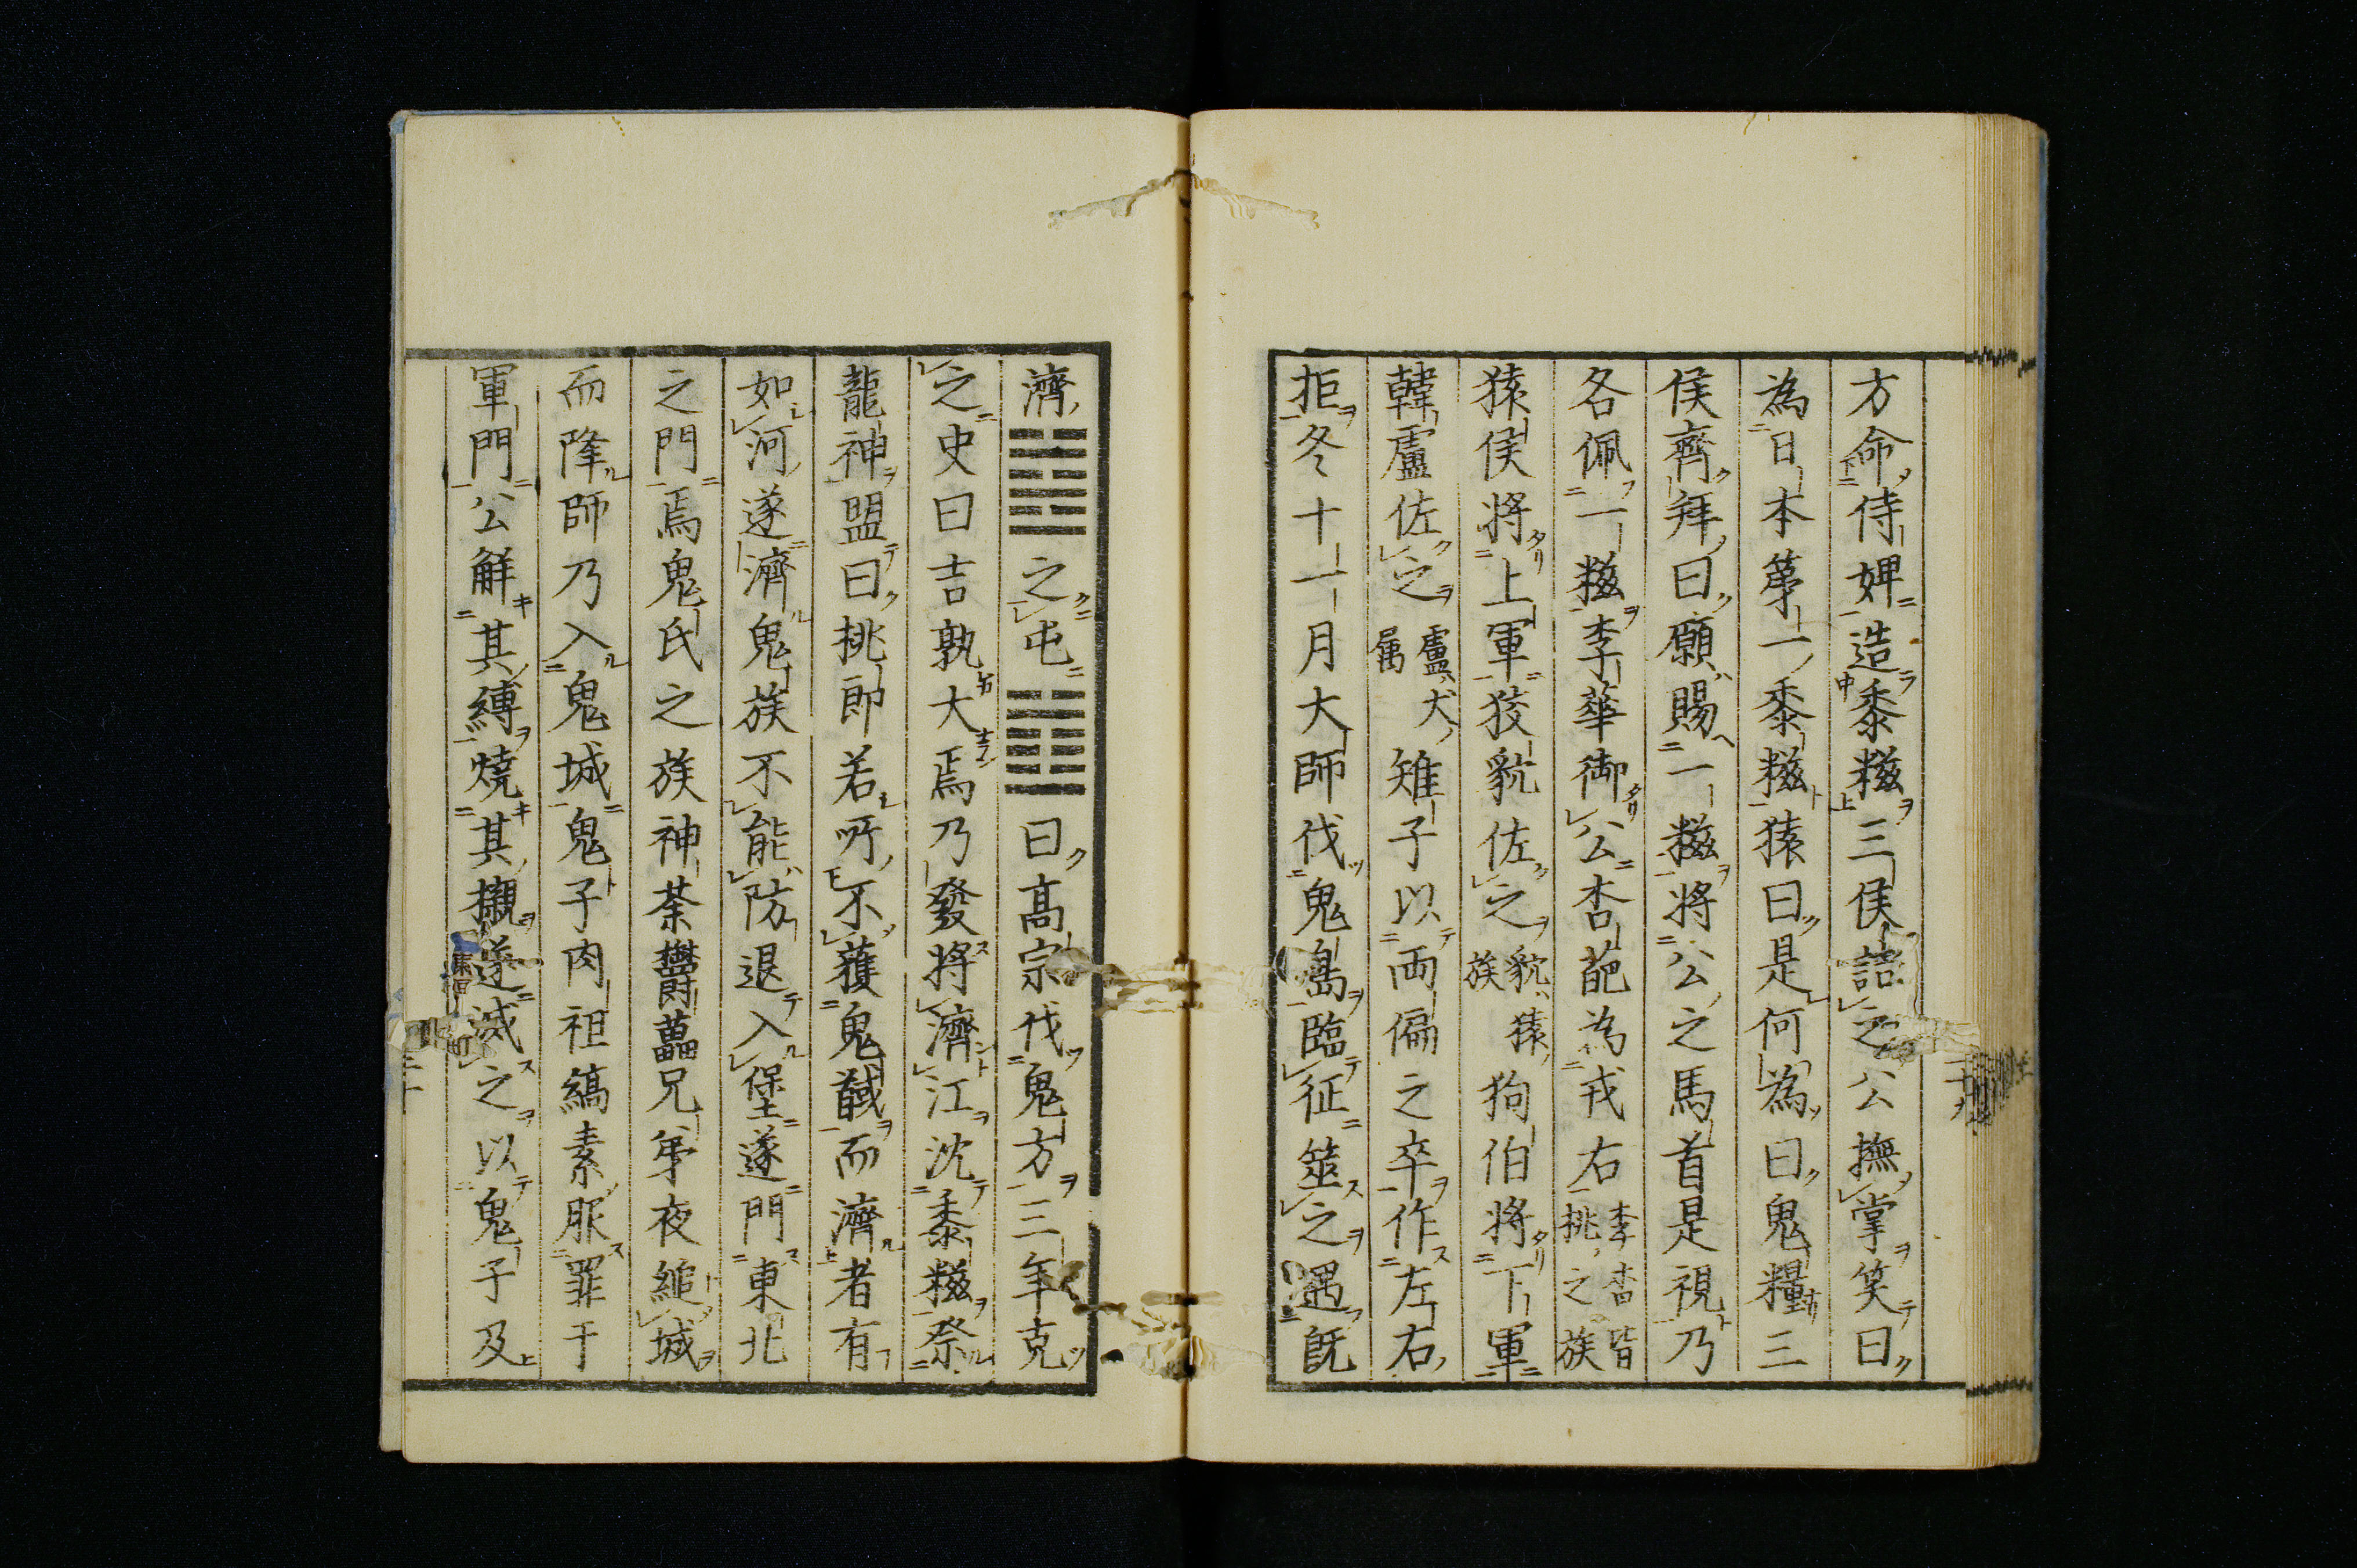 方命侍婢造黍糍三侯詰之公撫掌笑曰
為日本第一黍糍猿曰是何為曰鬼糧三
侯齊拜曰願賜一糍將公之馬首是視乃
各佩一糍李華御公杏葩為戎右李杏皆桃之族
猿侯將上軍狻貌佐之貌猿族狗伯將下軍
韓盧佐之盧犬屬雉子以両偏之卒作左右
拒冬十一月大師伐鬼島臨征筮之遇旣
濟䷾之屯䷂曰高宗伐鬼方三年克
之史曰吉孰大焉乃發將濟江沈黍糍祭
龍神盟曰桃郎若所不獲鬼馘而濟者有
如河遂濟鬼族不能防退入堡遂門東北
之門焉鬼氏之族神荼鬱壘兄弟夜縋城
而降師乃入鬼城鬼子肉袒縞素服罪于
軍門公解其縛燒其櫬遂滅之以鬼子及